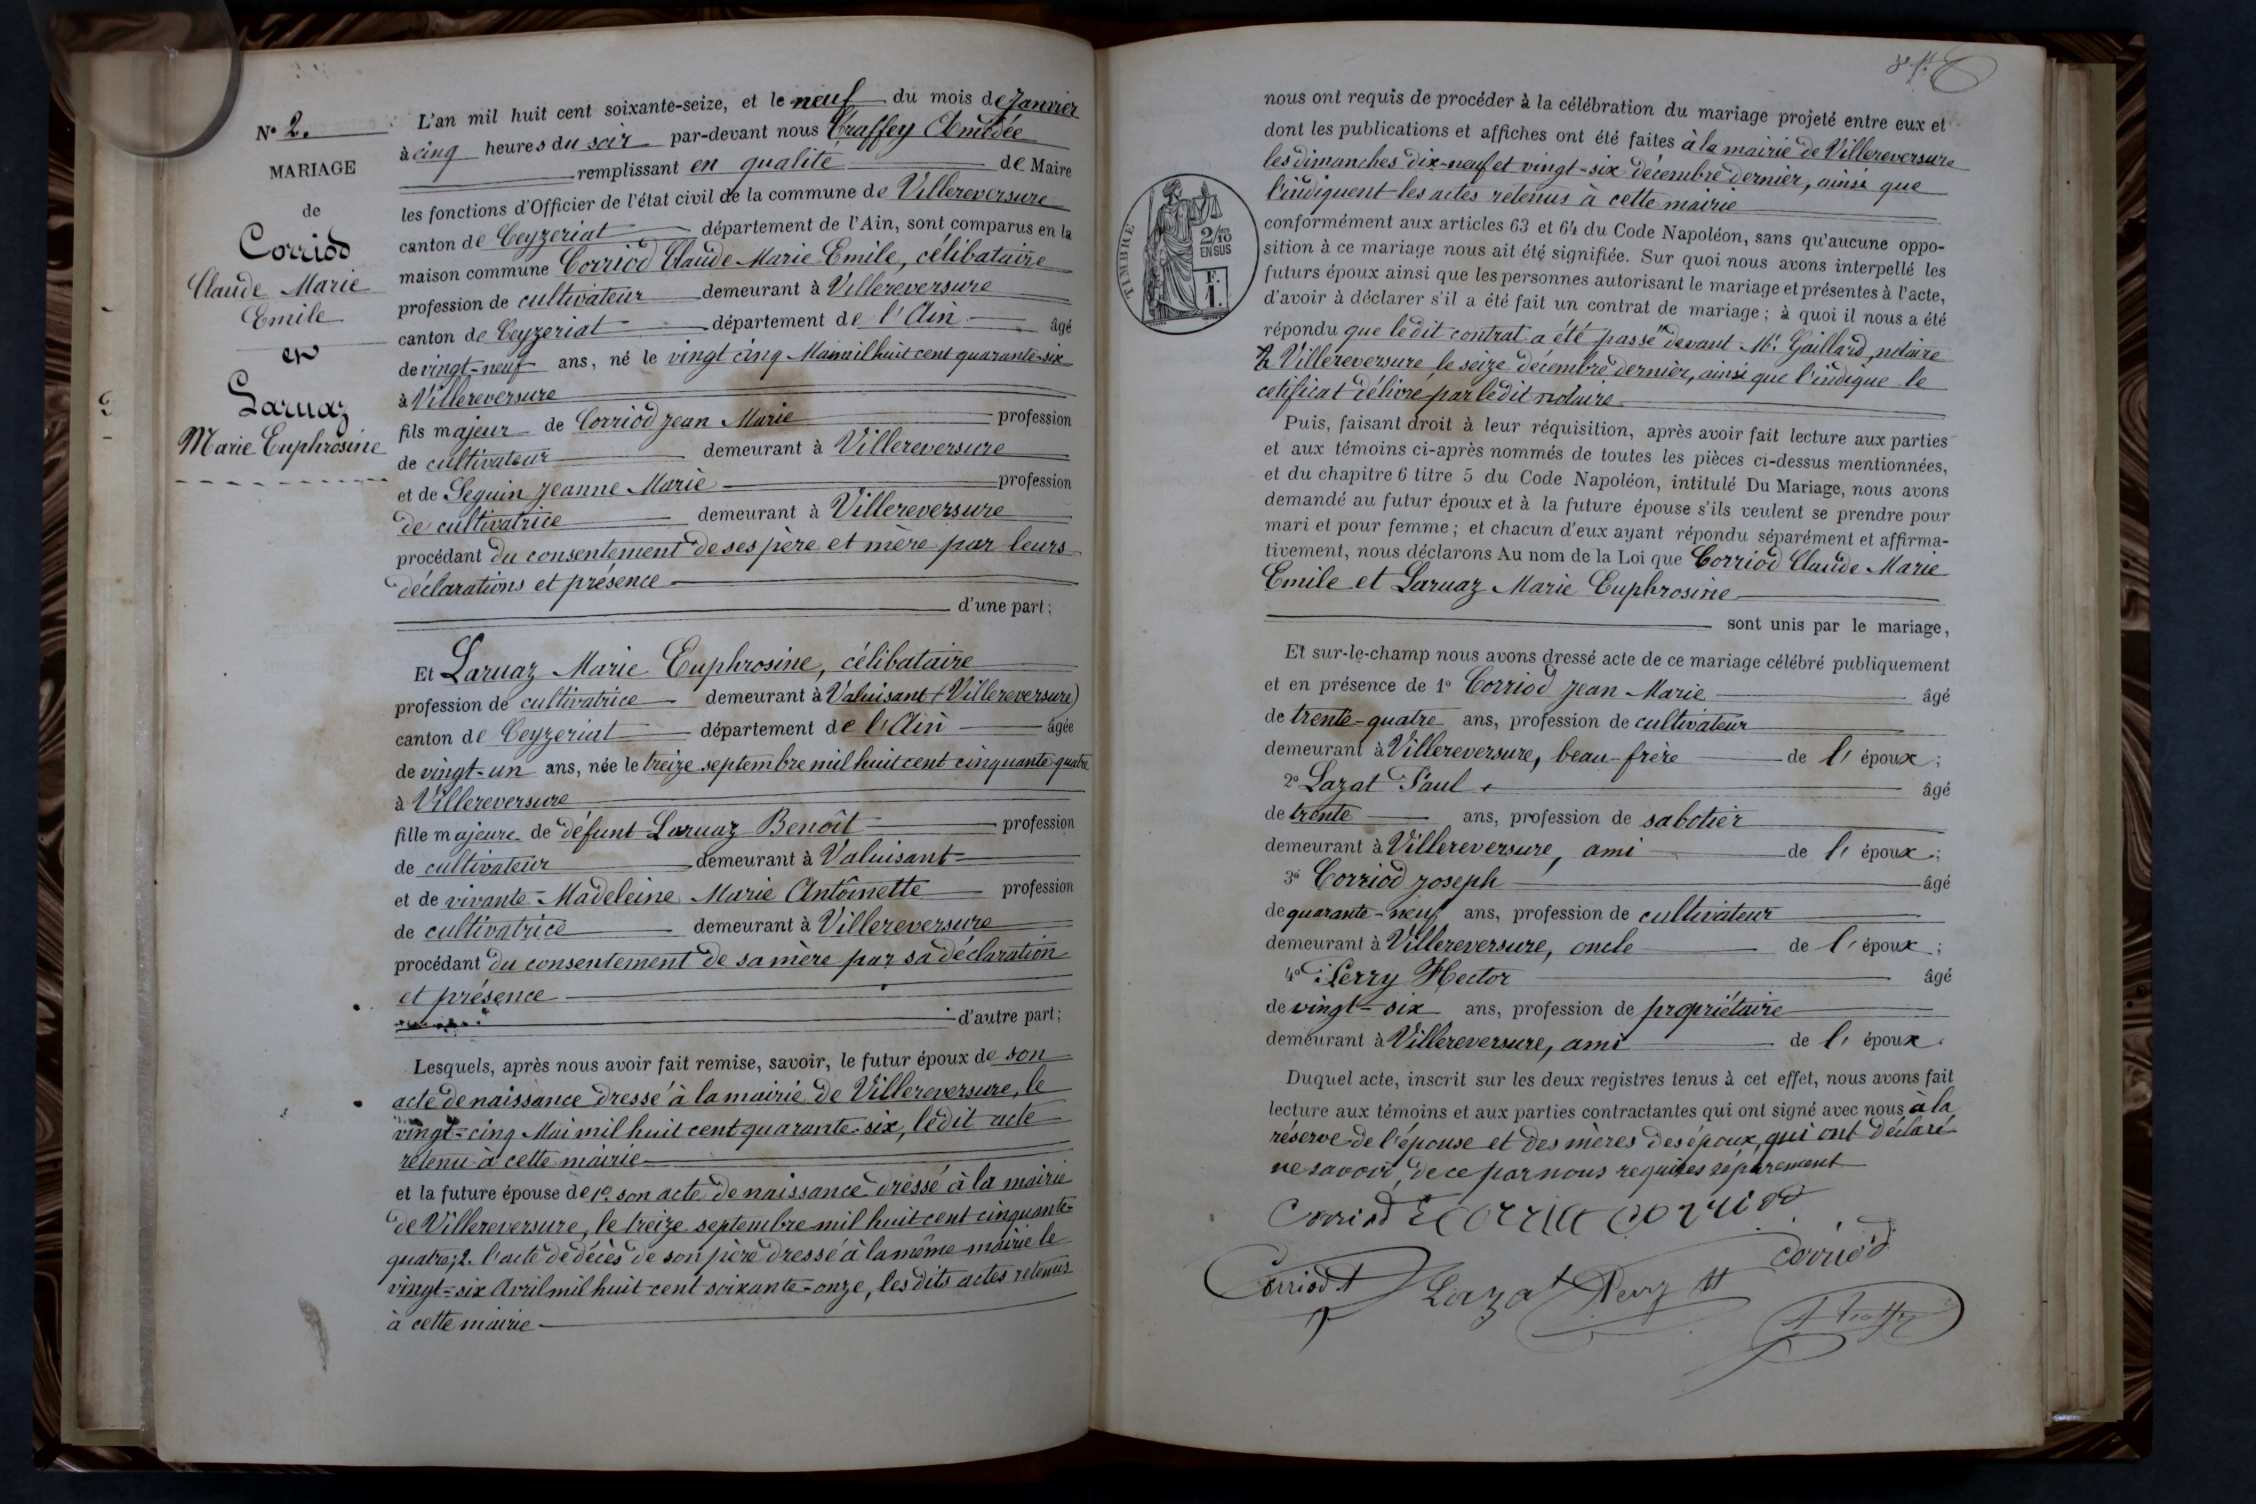 N° 2.
MARIAGE
de
Corriod
Claude Marie
Emile
et
Laruaz
Marie Euphrosine
L'an mil huit cent soixante-seize, et le neuf du mois de Janvier
à cinq heures du soir par-devant nous Traffey Amédée
remplissant en qualité de Maire
les fonctions d'Officier de l'état civil de la commune de Villereversure
canton de Ceyzeriat département de l'Ain, sont comparus en la
maison commune Corriod Claude Marie Emile, célibataire
profession de cultivateur demeurant à Villereversure
canton de Ceyzeriat département de l'Ain âgé
de vingt-neuf ans, né le vingt cinq Mai mil huit cent quarante-six
à Villereversure
fils majeur de Corriod Jean Marie profession
de cultivateur demeurant à Villereversure
et de Seguin Jeanne Marie profession
de cultivatrice demeurant à Villereversure
procédant du consentement de ses père et mère par leurs
déclarations et présence
d'une part;
Et Laruaz Marie Euphrosine, célibataire
profession de cultivatrice demeurant à Valuisant (Villereversure)
canton de Ceyzeriat département de l'Ain âgée
de vingt-un ans, née le treize septembre mil huit cent cinquante-quatre
à Villereversure
fille majeure de défunt Laruaz Benoît profession
de cultivateur demeurant à Valuisant
et de vivante Madeleine Marie Antoinette profession
de cultivatrice demeurant à Villereversure
procédant du consentement de sa mère par sa déclaration
et présence
d'autre part;
Lesquels, après nous avoir fait remise, savoir, le futur époux de son
acte de naissance dressé à la mairie de Villereversure, le
vingt-cinq Mai mil huit cent quarante-six, ledit acte
retenu à cette mairie
et la future épouse de 1° son acte de naissance dressé à la mairie
de Villereversure, le treize septembre mil huit cent cinquante-
quatre; 2. l'acte de décès de son père dressé à la même mairie le
vingt-six Avril mil huit cent soixante-onze, les dits actes retenus
à cette mairie
nous ont requis de procéder à la célébration du mariage projeté entre eux et
dont les publications et affiches ont été faites à la mairie de Villereversure
les dimanches dix-neuf et vingt-six décembre dernier, ainsi que
l'indiquent les actes retenus à cette mairie
TIMBRE
2/10
EN SUS
F.
1.
conformément aux articles 63 et 64 du Code Napoléon, sans qu'aucune oppo-
sition à ce mariage nous ait été signifiée. Sur quoi nous avons interpellé les
futurs époux ainsi que les personnes autorisant le mariage et présentes à l'acte,
d'avoir à déclarer s'il a été fait un contrat de mariage; à quoi il nous a été
répondu que ledit contrat a été passé devant Me. Gaillard, notaire
à Villereversure le seize décembre dernier, ainsi que l'indique le
cetificat délivré par ledit notaire
Puis, faisant droit à leur réquisition, après avoir fait lecture aux parties
et aux témoins ci-après nommés de toutes les pièces ci-dessus mentionnées,
et du chapitre 6 titre 5 du Code Napoléon, intitulé Du Mariage, nous avons
demandé au futur époux et à la future épouse s'ils veulent se prendre pour
mari et pour femme; et chacun d'eux ayant répondu séparément et affirma-
tivement, nous déclarons Au nom de la Loi que Corriod Claude Marie
Emile et Laruaz Marie Euphrosine
sont unis par le mariage,
Et sur-le-champ nous avons dressé acte de ce mariage célébré publiquement
et en présence de 1° Corriod Jean Marie âgé
de trente-quatre ans, profession de cultivateur
demeurant à Villereversure, beau-frère de l'époux;
2° Lazat Paul âgé
de trente ans, profession de sabotier
demeurant à Villereversure, ami de l'époux;
3° Corriod Joseph âgé
de quarante-neuf ans, profession de cultivateur
demeurant à Villereversure, oncle de l'époux;
4° Perry Hector âgé
de vingt-six ans, profession de propriétaire
demeurant à Villereversure, ami de l'époux.
Duquel acte, inscrit sur les deux registres tenus à cet effet, nous avons fait
lecture aux témoins et aux parties contractantes qui ont signé avec nous à la
réserve de l'épouse et des mères des époux, qui ont déclaré
ne savoir, de ce par nous requises séparément
Corriod E corriod
corriod
Corriod Lazat Perry H